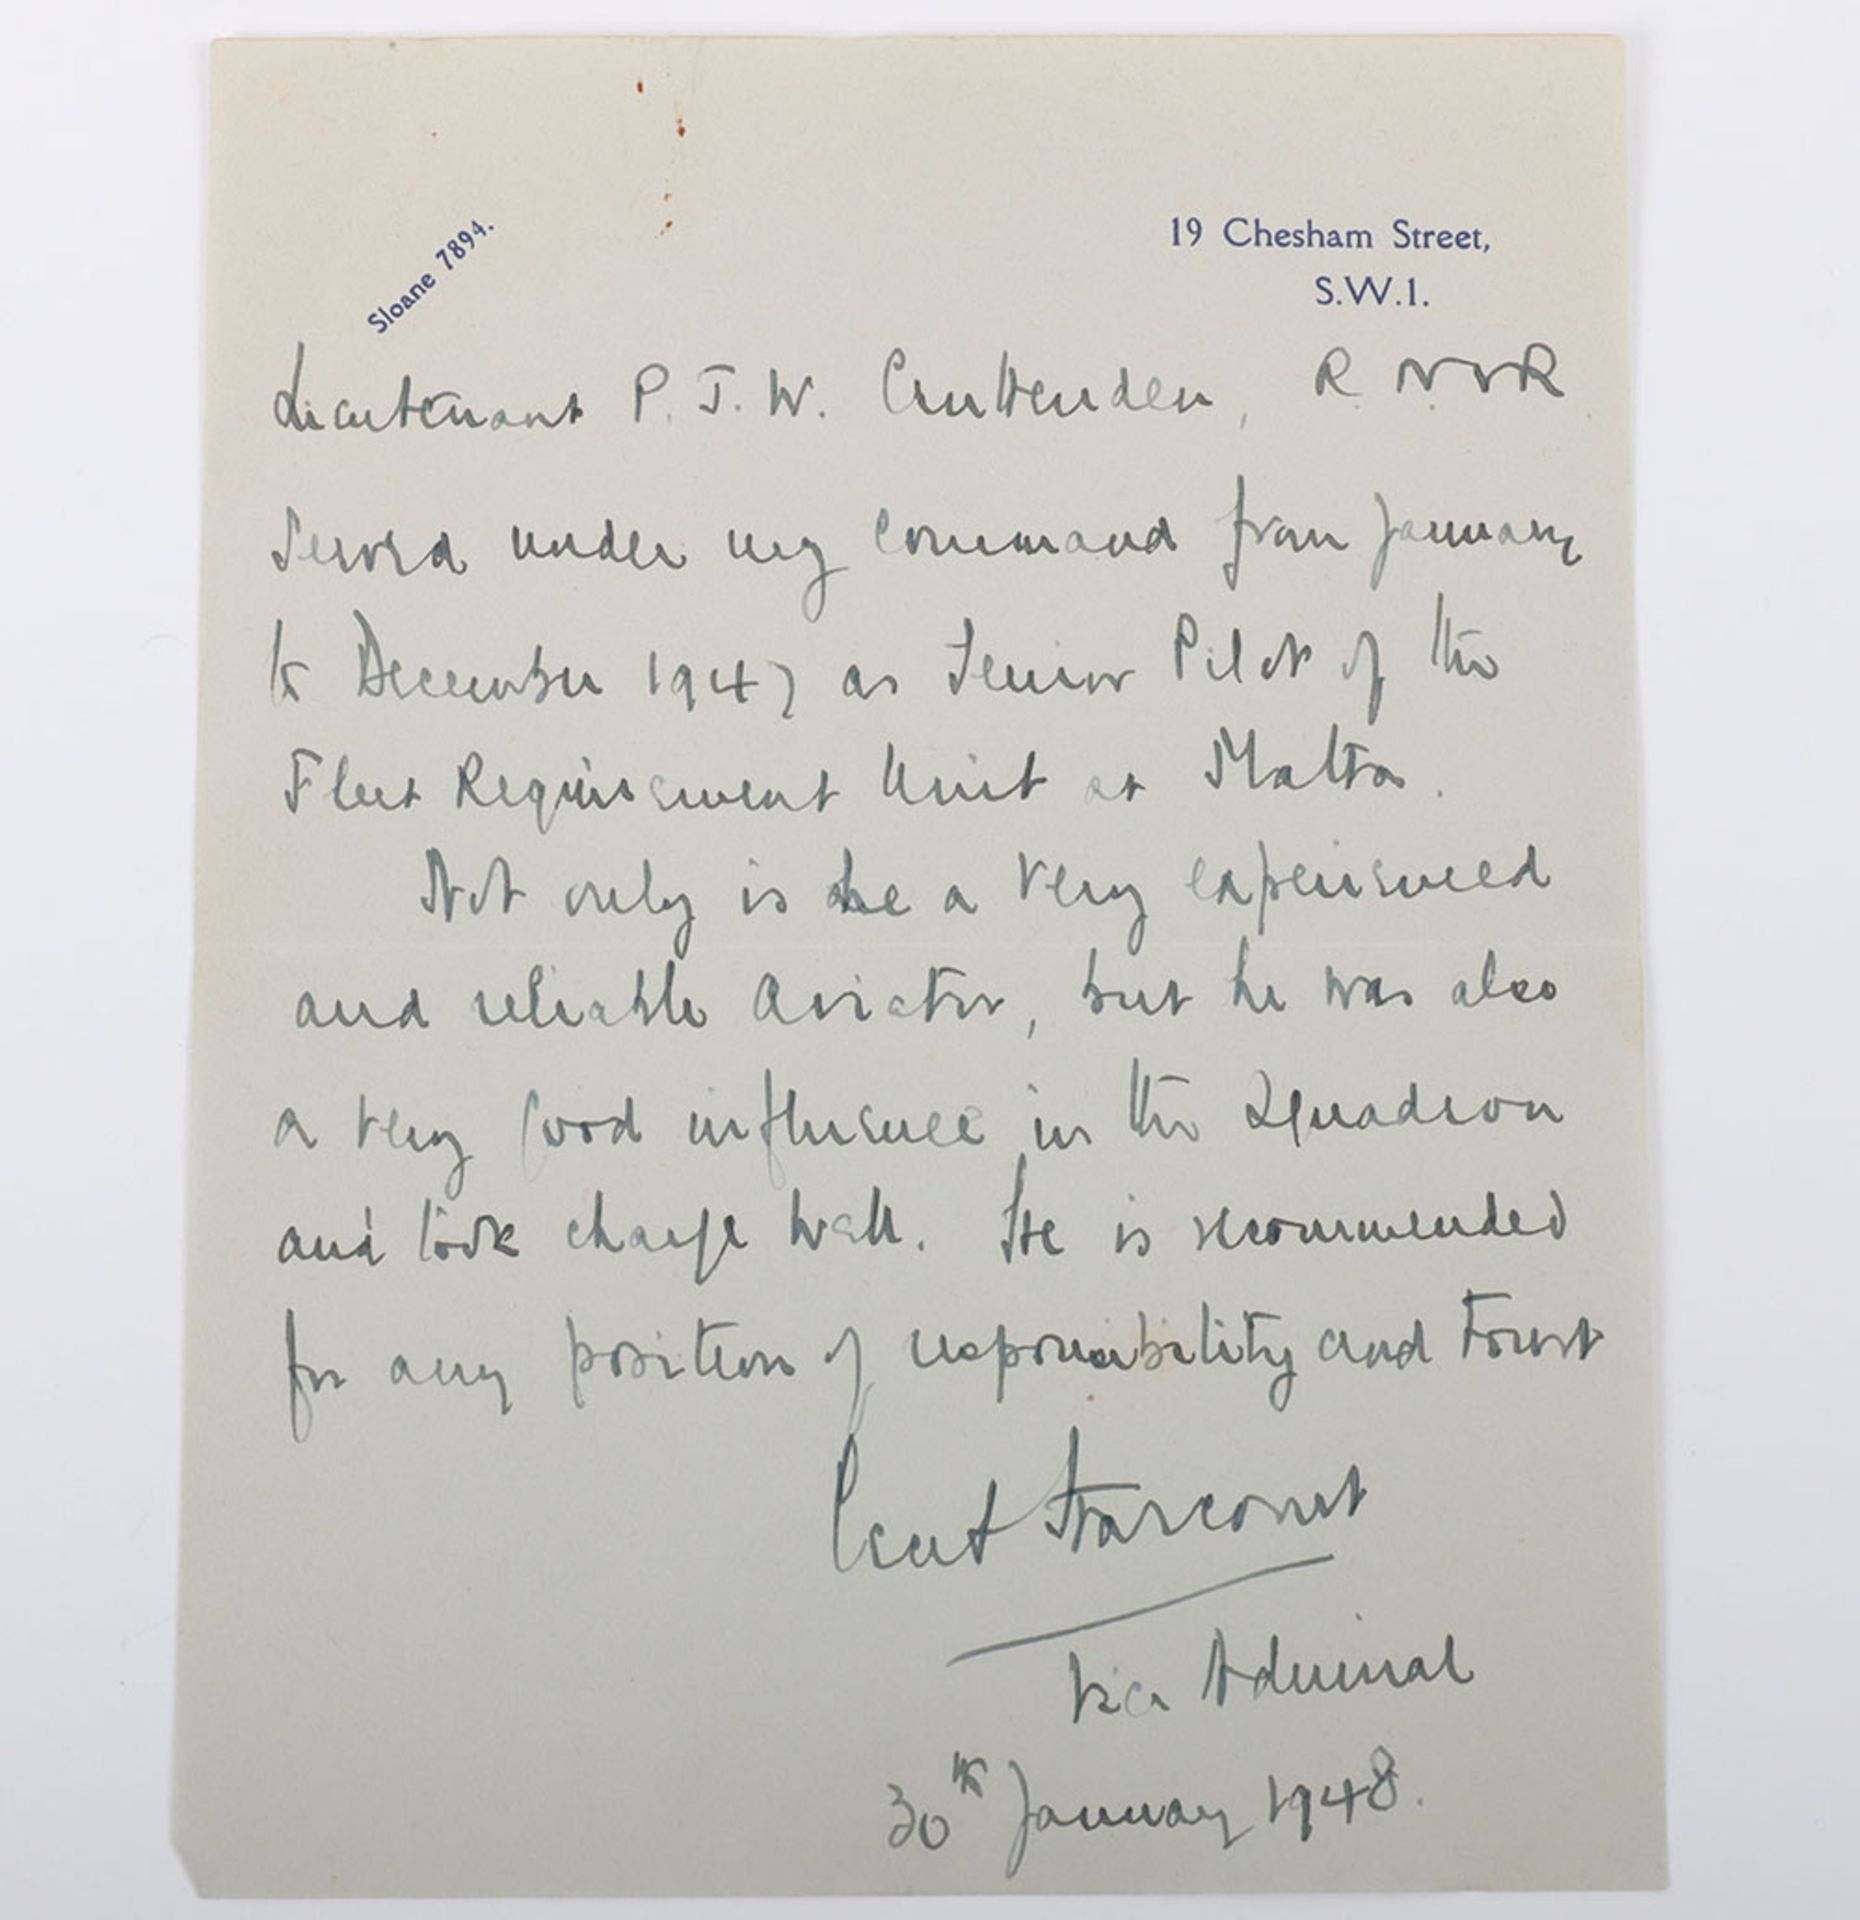 Sloane 7894.
19 Chesham Street,
S.W.1.
Lieutenant P. J. W. Cruttenden, R.N.V.R.
Served under my command from January
to December 1947 as Senior Pilot of the
Fleet Requirement Unit at Malta.
Not only is he a very experienced
and reliable Aviator, but he was also
a very good influence in the Squadron
and took charge well. He is recommended
for any position of responsibility and Trust
Cecil Harcourt
Vice Admiral
30th January 1948.